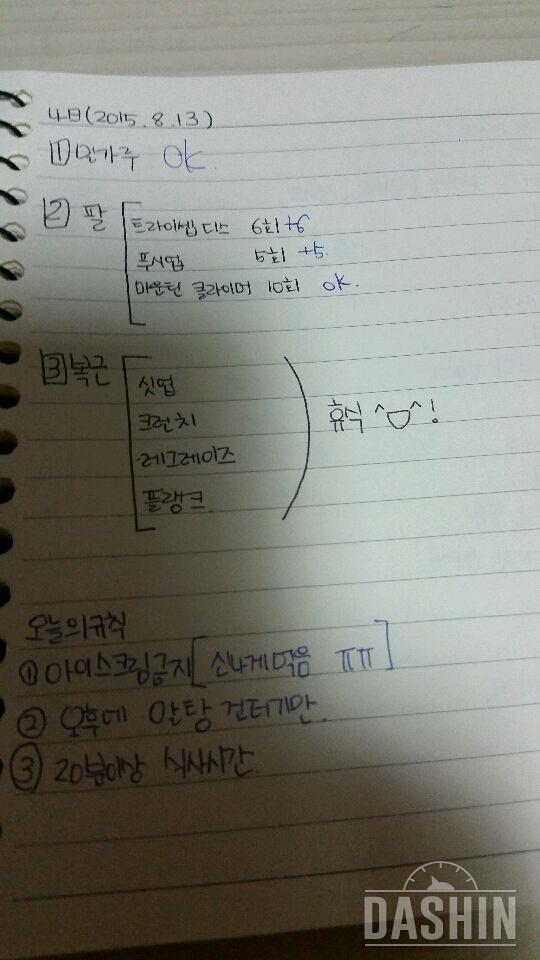 4日(2015.8.13)
1 밀가루 OK.
2 팔
트라이셉디스 6회 +6
푸시업 5회 +5.
마운틴 클라이머 10회 OK.
3 복근
싯업
크런치
레그레이즈
플랭크
휴식 ^▽^!
오늘의규칙
① 아이스크림금지[신나게먹음 ㅠㅠ]
② 오후에 알탕 건더기만.
③ 20분이상 식사시간.
DASHIN